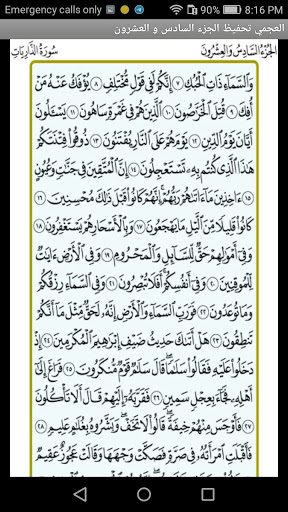 Emergency calls only 8:16 PM
العجمي تحفيظ الجزء السادس و العشرون
الجزء السادس والعشرون سورة الذاريات
وَالسَّمَاءِ ذَاتِ الْحُبُكِ ٧ إِنَّكُمْ لَفِي قَوْلٍ مُّخْتَلِفٍ ٨ يُؤْفَكُ عَنْهُ مَنْ
أُفِكَ ٩ قُتِلَ الْخَرَّاصُونَ ١٠ الَّذِينَ هُمْ فِي غَمْرَةٍ سَاهُونَ ١١ يَسْـَٔلُونَ
أَيَّانَ يَوْمُ الدِّينِ ١٢ يَوْمَ هُمْ عَلَى النَّارِ يُفْتَنُونَ ١٣ ذُوقُوا فِتْنَتَكُمْ
هَٰذَا الَّذِي كُنتُم بِهِ تَسْتَعْجِلُونَ ١٤ إِنَّ الْمُتَّقِينَ فِي جَنَّٰتٍ وَعُيُونٍ
١٥ ءَاخِذِينَ مَا ءَاتَىٰهُمْ رَبُّهُمْ إِنَّهُمْ كَانُوا قَبْلَ ذَٰلِكَ مُحْسِنِينَ ١٦
كَانُوا قَلِيلًا مِّنَ الَّيْلِ مَا يَهْجَعُونَ ١٧ وَبِالْأَسْحَارِ هُمْ يَسْتَغْفِرُونَ ١٨
وَفِي أَمْوَٰلِهِمْ حَقٌّ لِّلسَّائِلِ وَالْمَحْرُومِ ١٩ وَفِي الْأَرْضِ ءَايَٰتٌ
لِّلْمُوقِنِينَ ٢٠ وَفِي أَنفُسِكُمْ أَفَلَا تُبْصِرُونَ ٢١ وَفِي السَّمَاءِ رِزْقُكُمْ
وَمَا تُوعَدُونَ ٢٢ فَوَرَبِّ السَّمَاءِ وَالْأَرْضِ إِنَّهُ لَحَقٌّ مِّثْلَ مَا أَنَّكُمْ
تَنطِقُونَ ٢٣ هَلْ أَتَىٰكَ حَدِيثُ ضَيْفِ إِبْرَٰهِيمَ الْمُكْرَمِينَ ٢٤ إِذْ
دَخَلُوا عَلَيْهِ فَقَالُوا سَلَٰمًا قَالَ سَلَٰمٌ قَوْمٌ مُّنكَرُونَ ٢٥ فَرَاغَ إِلَىٰ
أَهْلِهِ فَجَاءَ بِعِجْلٍ سَمِينٍ ٢٦ فَقَرَّبَهُ إِلَيْهِمْ قَالَ أَلَا تَأْكُلُونَ
٢٧ فَأَوْجَسَ مِنْهُمْ خِيفَةً قَالُوا لَا تَخَفْ وَبَشَّرُوهُ بِغُلَٰمٍ عَلِيمٍ ٢٨
فَأَقْبَلَتِ امْرَأَتُهُ فِي صَرَّةٍ فَصَكَّتْ وَجْهَهَا وَقَالَتْ عَجُوزٌ عَقِيمٌ